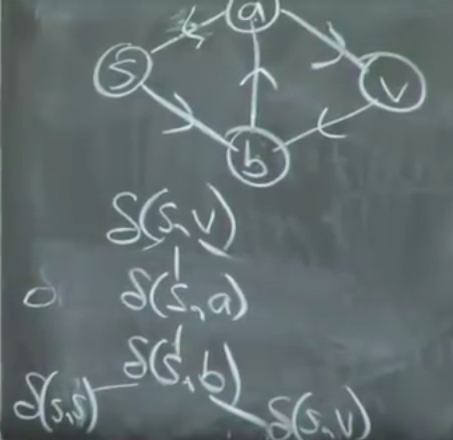 a
s
v
b
δ(s,v)
δ(s,a)
δ(s,b)
δ(s,s)
δ(s,v)